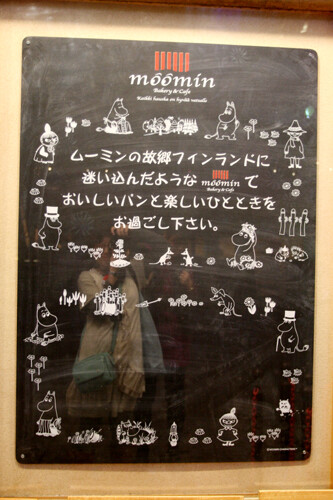 môômin
Bakery & Cafe
Kaikki hauska on hyvää vatsalle
ムーミンの故郷フィンランドに
迷い込んだような môômin Bakery & Cafe で
おいしいパンと楽しいひとときを
お過ごし下さい。